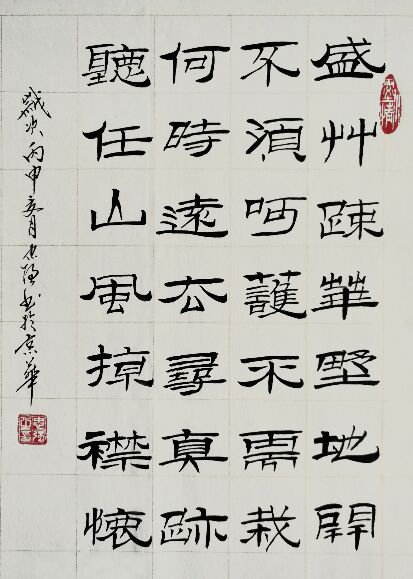 盛艸疎華墅地開
不須呵護不需栽
何時遠厺尋真跡
聽任山風掠襟懷
歲次丙申月书於京華